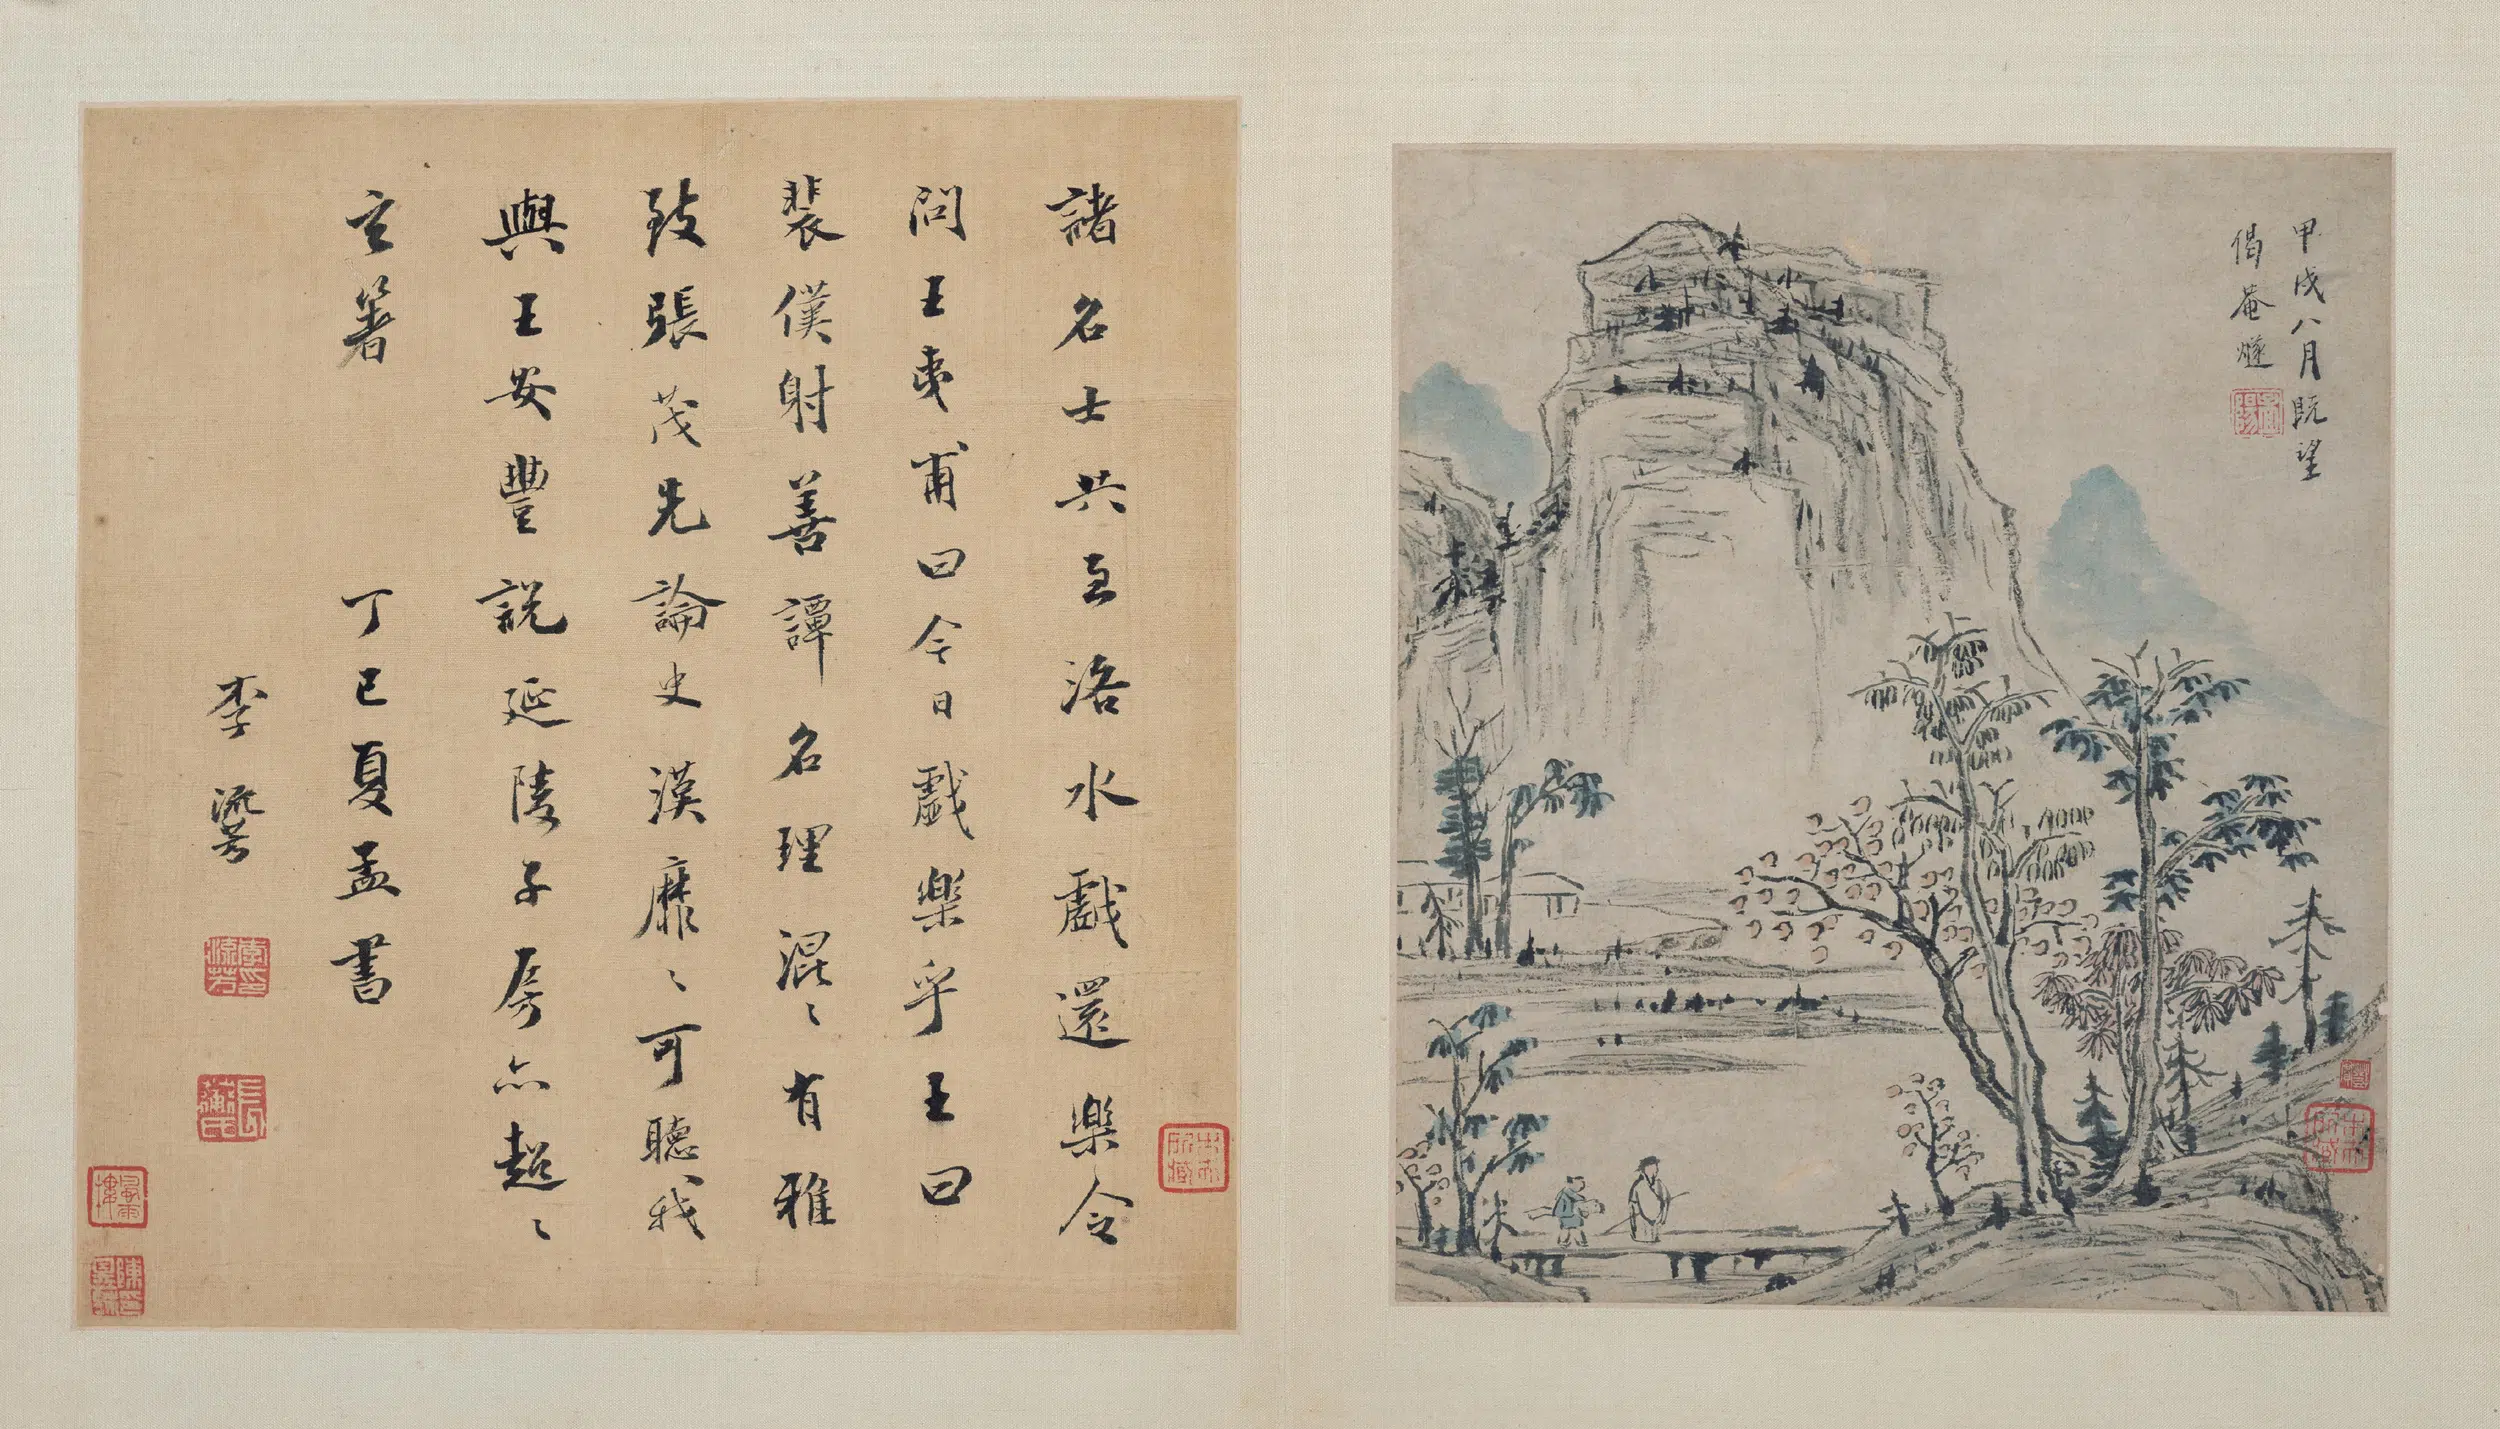 甲戌八月既望
偈菴燧
孟陽
諸名士共至洛水戲還樂令
問王夷甫曰今日戲樂乎王曰
裴僕射善譚名理混〻有雅
致張茂先論史漢靡〻可聽我
與王安豐說延陵子房亦超〻
玄著　丁巳夏孟書
李流芳
李流芳印
長蘅氏